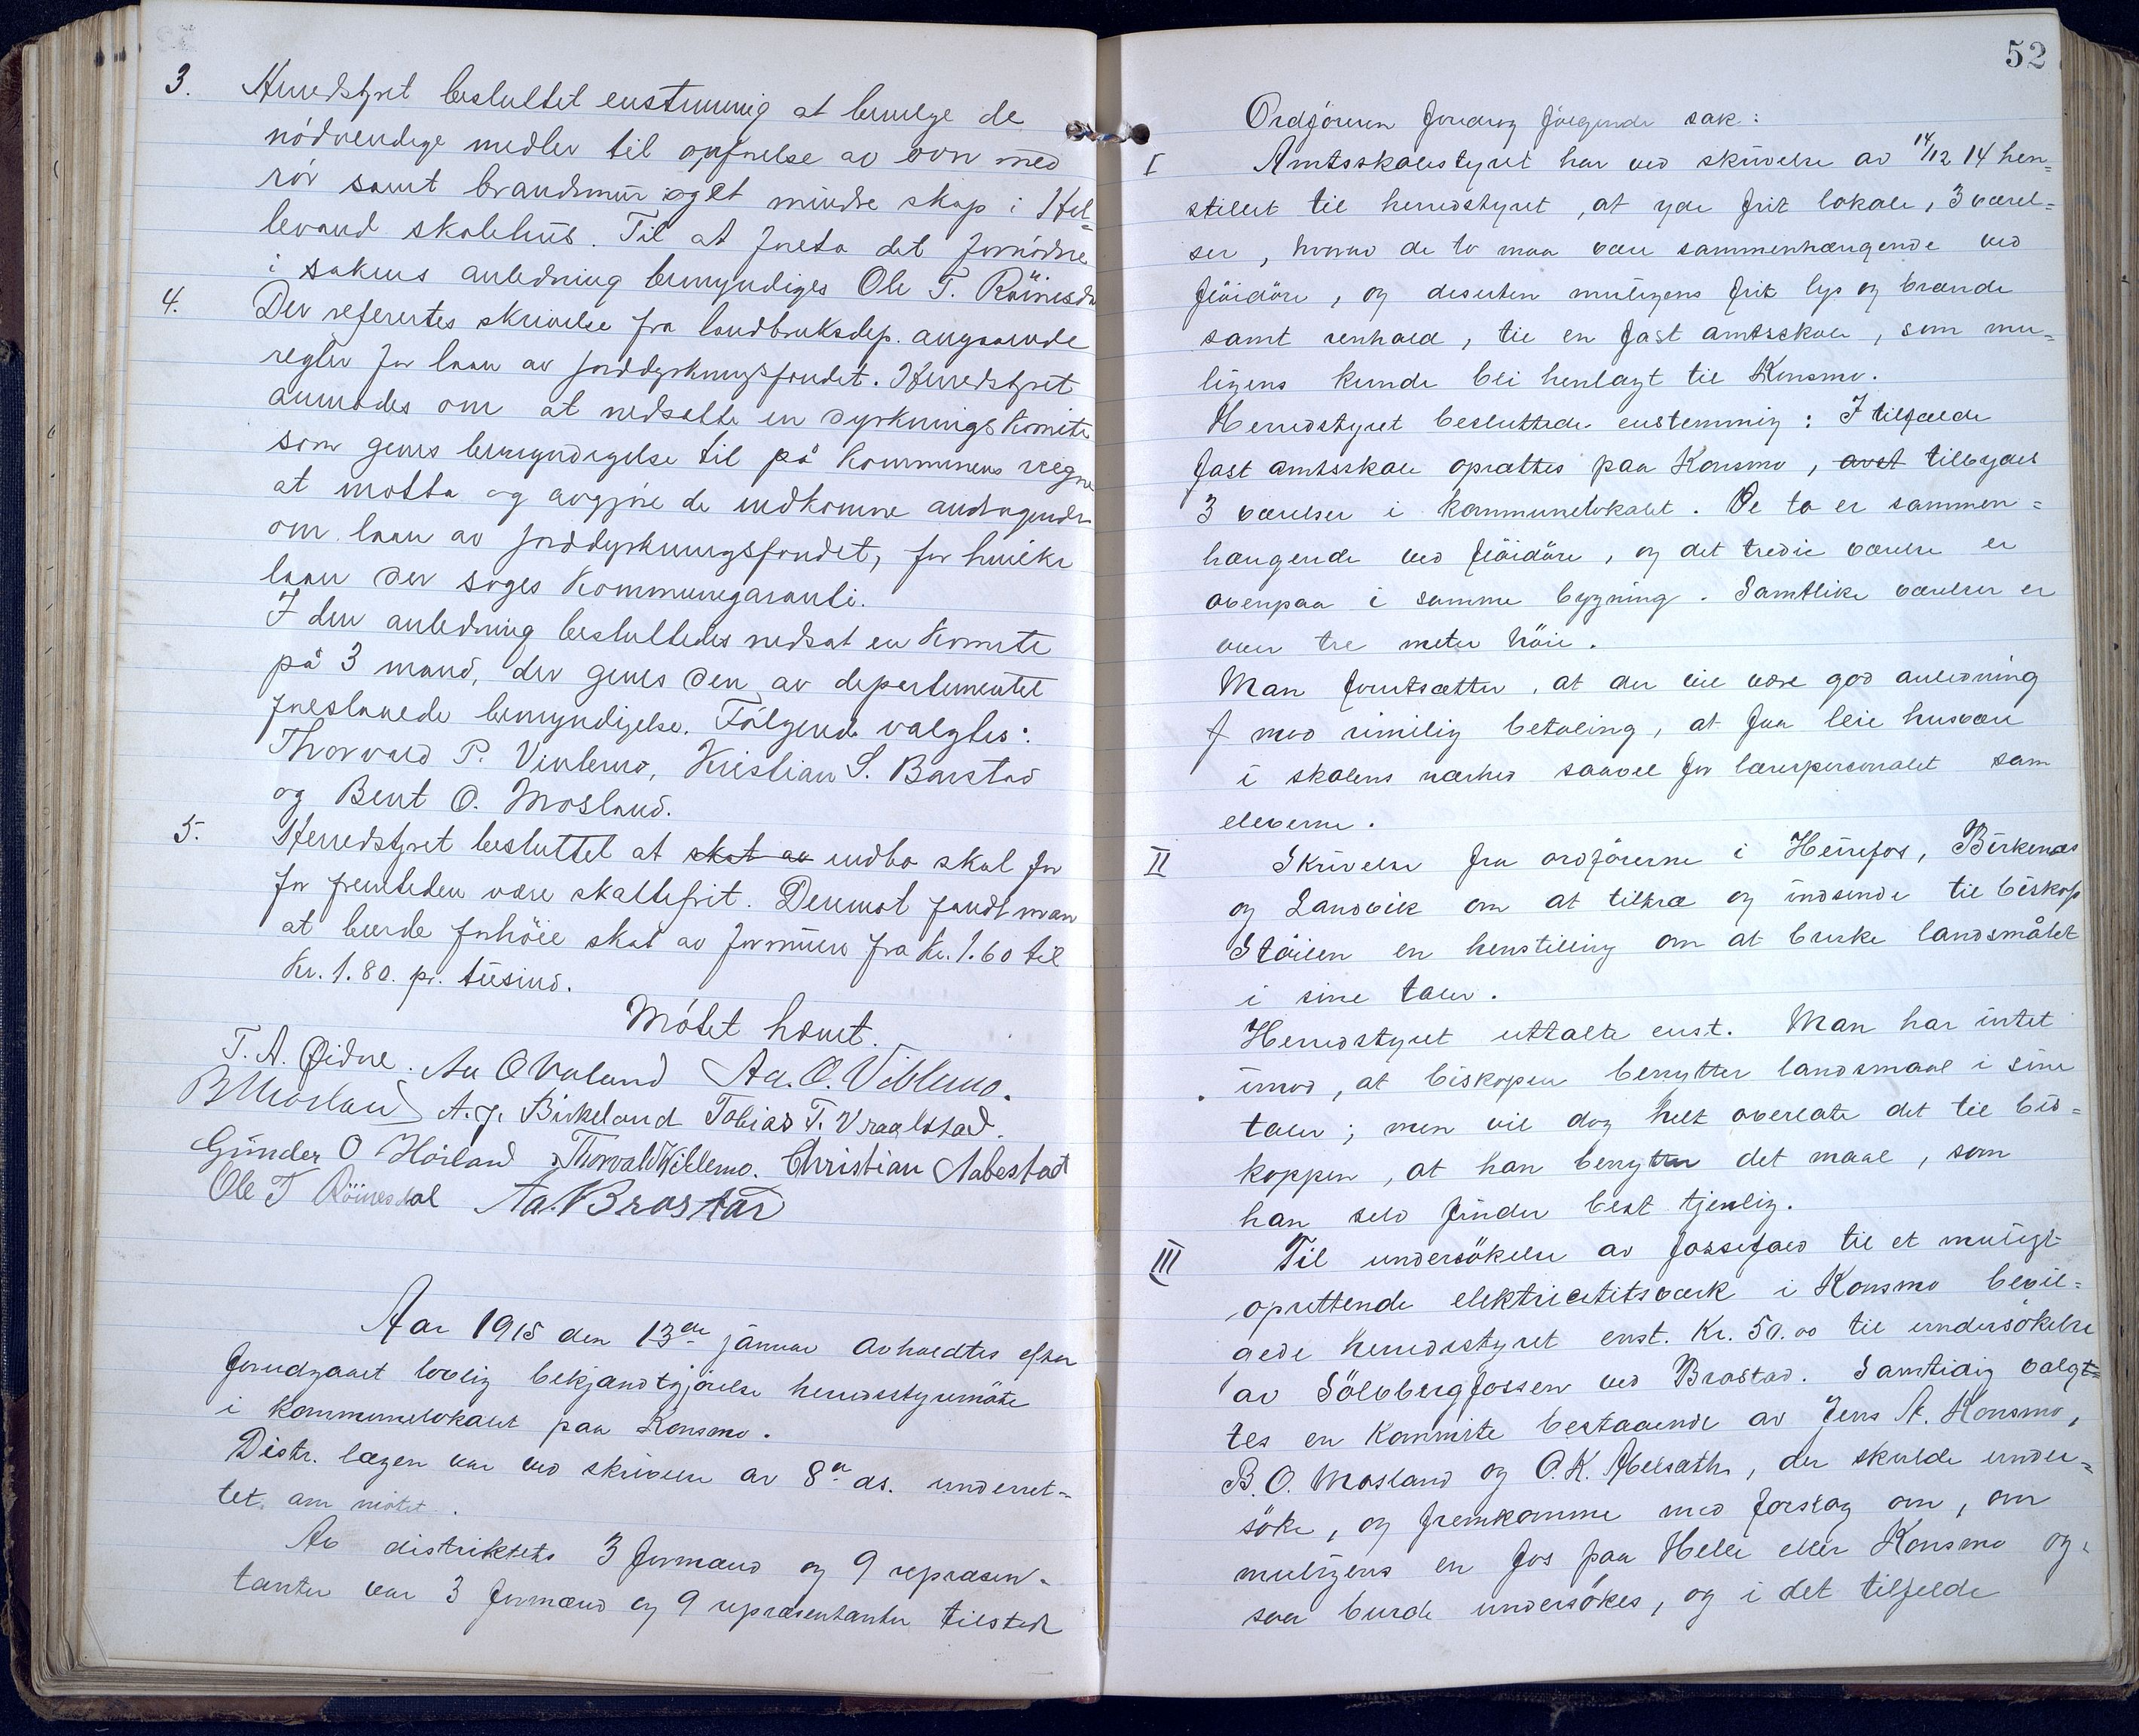 3. Herredstyret besluttet enstemmig at bevilge de
nödvendige midler til opførelse av ovn med
rör samt brandmur og et mindre skap i Hel-
levand skolehus. Til at foreta det fornödne
i sakens anledning bemyndiges Ole T. Röinesdal
4. Der referertes skrivelse fra landbruksdep. angaaende
regler for laan av jorddyrkningsfondet. Herredstyret
anmodes om at nedsætte en dyrkningskomite
som gives bemyndigelse til på kommunens vegne
at motta og avgjöre de indkomne andragender
om laan av jorddyrkningsfondet, for hvilke
laan der söges kommunegaranti.
I den anledning besluttedes nedsat en komite
på 3 mand, der gives den av departementet
foreslaaede bemyndigelse. Fölgende valgtes:
Thorvald P. Viblemo, Kristian S. Barstad
og Bent O. Mosland.
5. Herredstyret besluttet at skat av indbo skal for
for fremtiden være skattefrit. Derimot fandt man
at burde forhöie skat av formue fra Kr. 1.60 til
Kr. 1.80. pr. tusind.
Mötet hævet.
T. A. Øidne. Aa O Valand Aa. O. Viblemo.
B Mosland A. J. Birkeland Tobias T. Vraalstad.
Gunder O Höiland Thorvald Viblemo. Christian Aabestad
Ole T Röinesdal Aa. Brostad
Aar 1915 den 13de januar avholdtes efter
forudgaaet lovlig bekjandtgjörelse herredsstyremöte
i kommunelokalet paa Konsmo.
Distr. lægen var ved skrivelse av 8de ds. underret-
tet om mötet.
Av distriktets 3 formænd og 9 repræsen-
tanter var 3 formænd og 9 repræsentanter tilstede
52
Ordföreren foredrog fölgende sak:
I Amtsskolestyret har ved skrivelse av 14/12 14 hen=
stillet til herredstyret, at yde frit lokale, 3 værel=
ser, hvorav de to maa være sammenhængende ved
flöidöre, og desuten muligens frit lys og brænde
samt renhold, til en fast amtsskole, som mu=
ligens kunde bli henlagt til Konsmo.
Herredstyret besluttede enstemmig: I tilfælde
fast amtsskole oprættes paa Konsmo, avet tilbydes
3 værelser i kommunelokalet. De to er sammen=
hængende ved flöidöre, og det tredie værelse er
ovenpaa i samme bygning. Samtlike værelser er
over tre meter höie.
Man forutsætter, at der vil være god anledning
f mod rimelig betaling, at faa leie husvære
i skolens nærhed saavel for lærerpersonalet som
eleverne.
II Skrivelse fra ordförerne i Herefos, Birkenes
og Landvik om at tiltræ og indsende til biskop
Stöilen en henstilling om at bruke landsmålet
i sine taler.
Herredstyret uttalte enst. Man har intet
imod, at biskopen benytter landsmaal i sine
taler; men vil dog helt overlate det til bis=
koppen, at han benytter det maal, som
han selv finder best tjenlig.
III Til undersökelse av fossefald til et muligt
oprettende elektricitetsværk i Konsmo bevil=
gede herredsstyret enst. Kr. 50.00 til undersökelse
av Sölvbergfossen ved Brostad. Samtidig valgt=
tes en Kommite bestaaende av Jens A. Konsmo,
B. O. Mosland og O. K. Abelsæth, der skulde under=
söke, og fremkomme med forslag om, om
muligens en fos paa Helle eller Konsmo og=
saa burde undersökes, og i det tilfelde